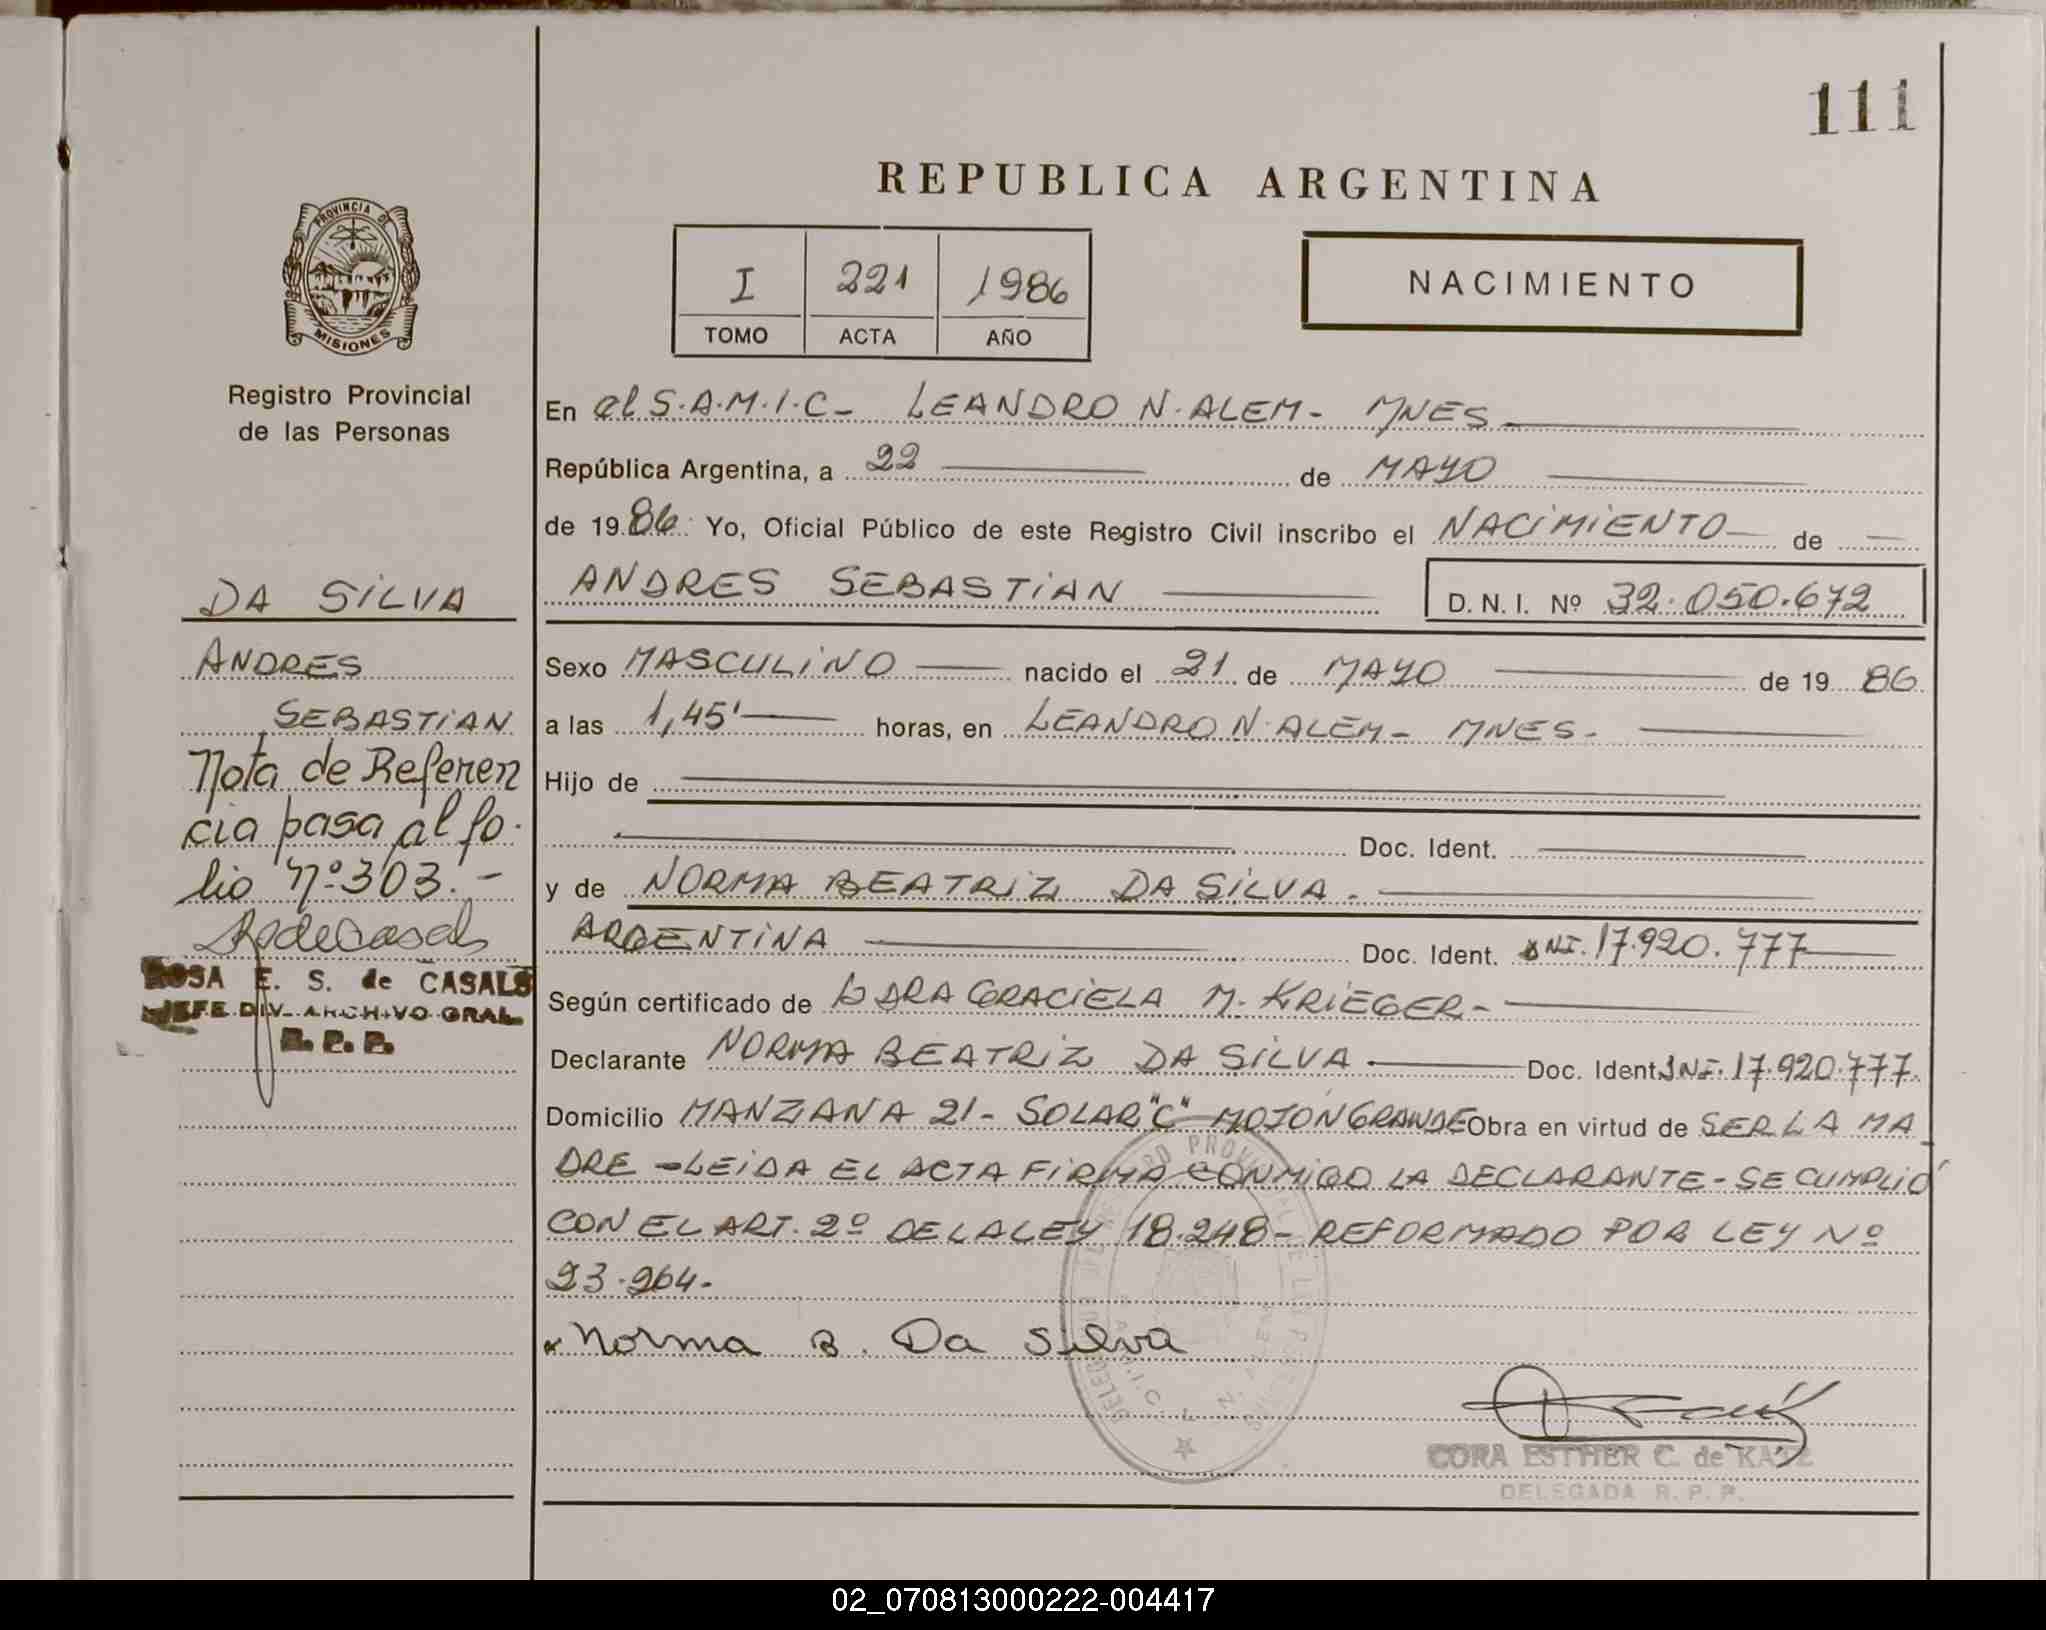 111
REPUBLICA ARGENTINA
PROVINCIA DE
MISIONES
Registro Provincial
de las Personas
I 221 1986
TOMO ACTA AÑO
NACIMIENTO
DA SILVA
ANDRES
SEBASTIAN
Nota de Referen
cia pasa al fo-
lio Nº 303.-
ROSA E. S. de CASALS
JEFE DIV. ARCHIVO GRAL.
R. P. P.
En el S.A.M.I.C- LEANDRO N. ALEM- MNES
República Argentina, a 22 de MAYO
de 1986 Yo, Oficial Público de este Registro Civil inscribo el NACIMIENTO de
ANDRES SEBASTIAN D.N.I. Nº 32.050.672
Sexo MASCULINO nacido el 21 de MAYO de 19 86
a las 1,45' horas, en LEANDRO N. ALEM- MNES-
Hijo de
Doc. Ident.
y de NORMA BEATRIZ DA SILVA.
ARGENTINA Doc. Ident. DNI. 17.920.777
Según certificado de LA DRA GRACIELA M. KRIEGER-
Declarante NORMA BEATRIZ DA SILVA Doc. Ident. DNI. 17.920.777.
Domicilio MANZANA 21- SOLAR "C" MOJON GRANDE Obra en virtud de SER LA MA_
DRE -LEIDA EL ACTA FIRMA CONMIGO LA DECLARANTE- SE CUMPLIÓ
CON EL ART. 2º DE LA LEY 18.248- REFORMADO POR LEY Nº
23.264-
x Norma B. Da Silva
CORA ESTHER C. de KATZ
DELEGADA R. P. P.
02_070813000222-004417